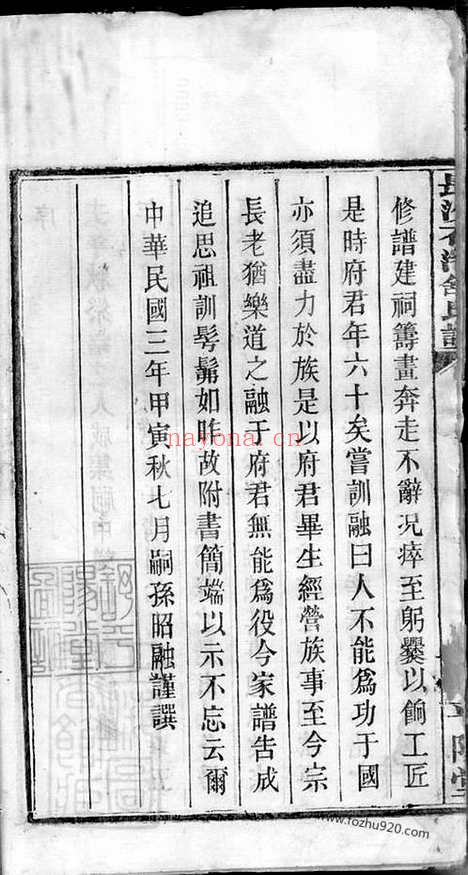 修譜建祠籌畫奔走不辭况瘁至躬爨以餉工匠
是時府君年六十矣嘗訓融曰人不能爲功于國
亦須盡力於族是以府君畢生經營族事至今宗
長老猶樂道之融于府君無能爲役今家譜告成
追思祖訓髣髴如昨故附書簡端以示不忘云爾
中華民國三年甲寅秋七月嗣孫昭融謹譔
序
nayona.cn
www.fozhu920.com